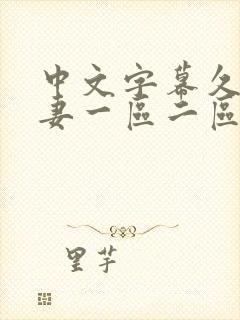 中文字幕久
妻一區二區
里芋